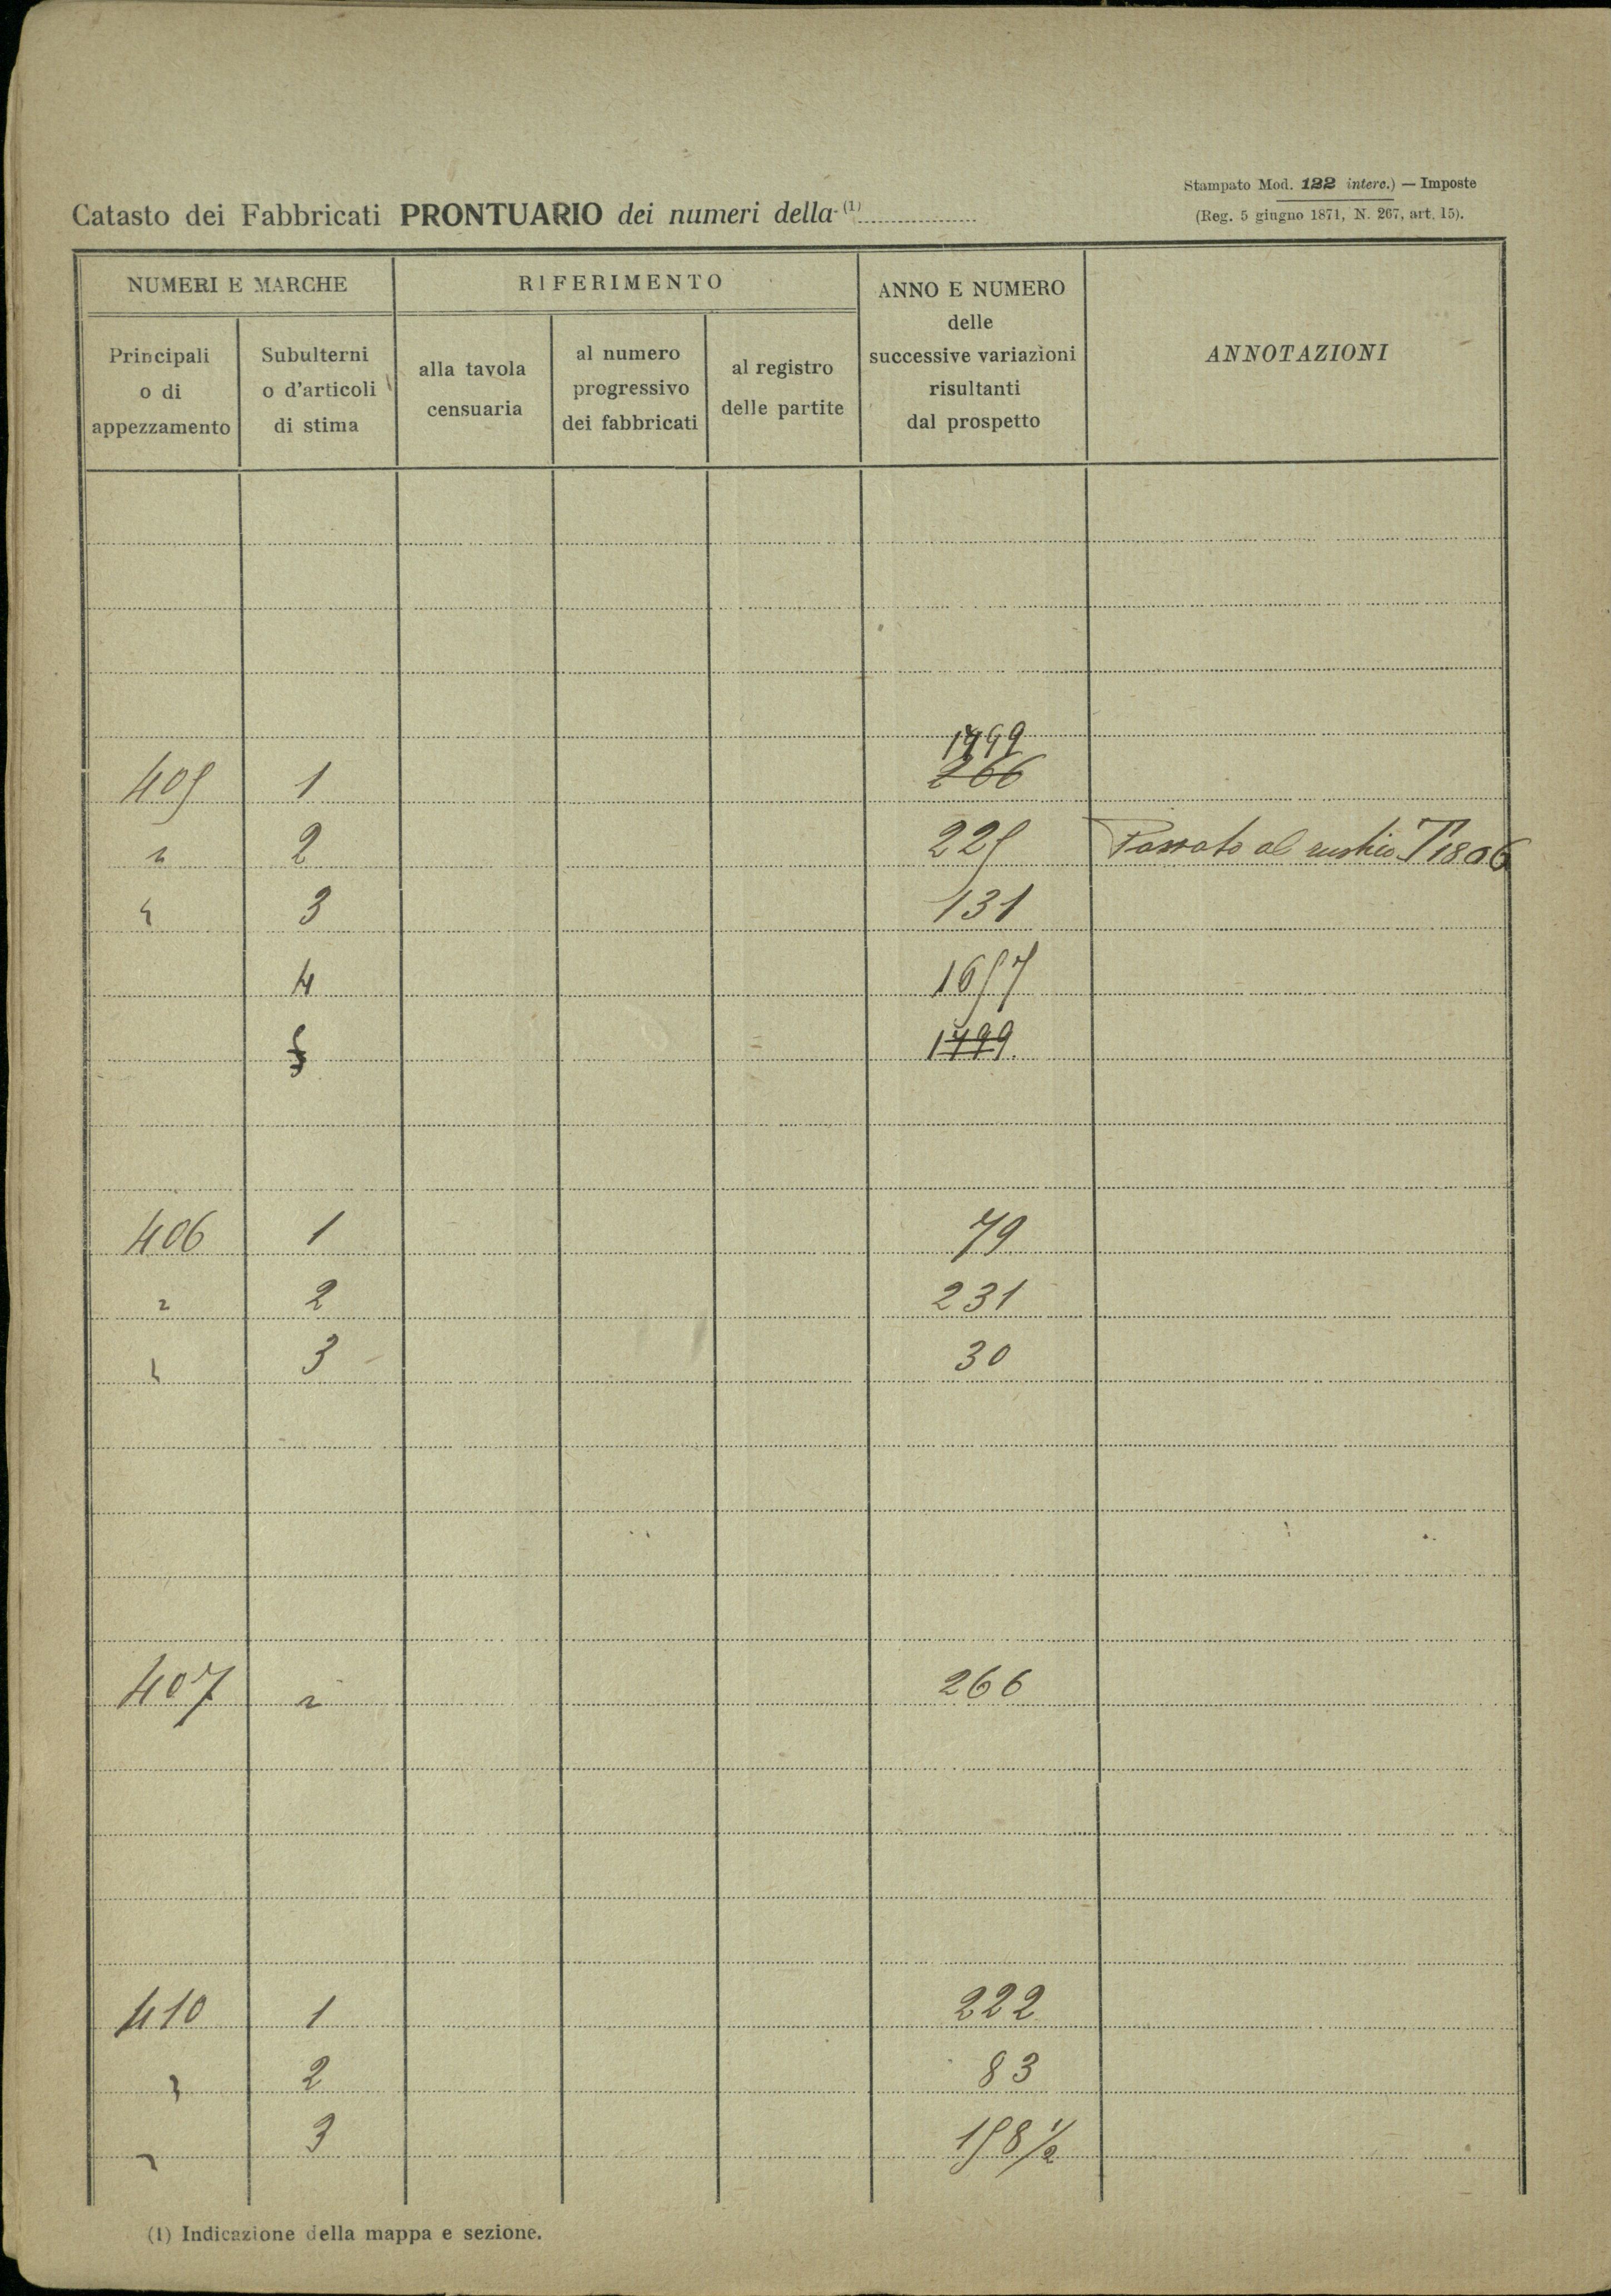 Stampato Mod. 122 interc.) — Imposte
(Reg. 5 giugno 1871, N. 267, art. 15).
Catasto dei Fabbricati PRONTUARIO dei numeri della (1)
NUMERI E MARCHE
RIFERIMENTO
ANNO E NUMERO
delle
successive variazioni
risultanti
dal prospetto
ANNOTAZIONI
Principali
o di
appezzamento
Subulterni
o d'articoli
di stima
alla tavola
censuaria
al numero
progressivo
dei fabbricati
al registro
delle partite
1799
405 1 266
" 2 225 Passato al rustico T 1806
" 3 131
4 1657
5 1799
406 1 79
" 2 231
" 3 30
407 " 266
410 1 222
" 2 83
" 3 158 1/2
(1) Indicazione della mappa e sezione.